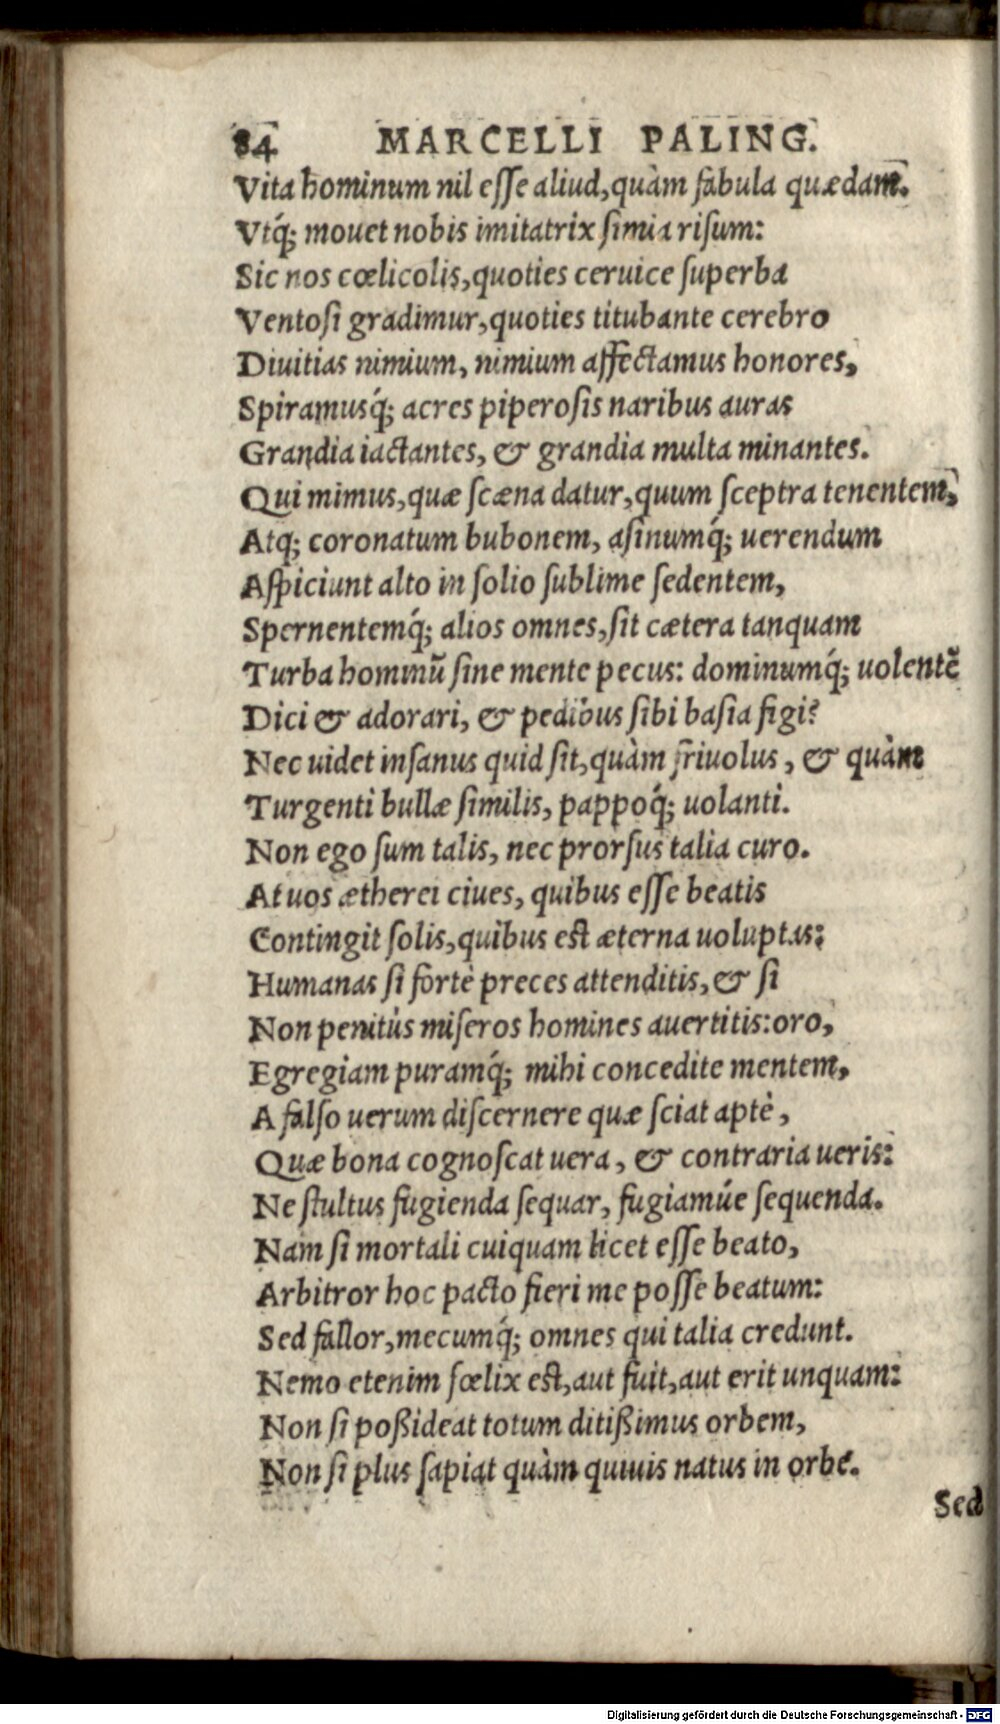 84 MARCELLI PALING.
Vita hominum nil eſſe aliud, quàm fabula quædam.
Vtq́; mouet nobis imitatrix ſimia riſum:
Sic nos cœlicolis, quoties ceruice ſuperba
Ventoſi gradimur, quoties titubante cerebro
Diuitias nimium, nimium affectamus honores,
Spiramusq́; acres piperoſis naribus auras
Grandia iactantes, & grandia multa minantes.
Qui mimus, quæ ſcæna datur, quum ſceptra tenentem,
Atq; coronatum bubonem, aſinumq́; uerendum
Aſpiciunt alto in ſolio ſublime ſedentem,
Spernentemq́; alios omnes, ſit cætera tanquam
Turba hominũ ſine mente pecus: dominumq́; uolentẽ
Dici & adorari, & pedibus ſibi baſia figi?
Nec uidet inſanus quid ſit, quàm friuolus, & quàm
Turgenti bullæ ſimilis, pappoq́; uolanti.
Non ego ſum talis, nec prorſus talia curo.
At uos ætherei ciues, quibus eſſe beatis
Contingit ſolis, quibus eſt æterna uoluptas:
Humanas ſi fortè preces attenditis, & ſi
Non penitùs miſeros homines auertitis: oro,
Egregiam puramq́; mihi concedite mentem,
A falſo uerum diſcernere quæ ſciat aptè,
Quæ bona cognoſcat uera, & contraria ueris:
Ne ſtultus fugienda ſequar, fugiamúe ſequenda.
Nam ſi mortali cuiquam licet eſſe beato,
Arbitror hoc pacto fieri me poſſe beatum:
Sed fallor, mecumq́; omnes qui talia credunt.
Nemo etenim fœlix eſt, aut fuit, aut erit unquam:
Non ſi poßideat totum ditißimus orbem,
Non ſi plus ſapiat quàm quiuis natus in orbe.
Sed
Digitalisierung gefördert durch die Deutsche Forschungsgemeinschaft - DFG